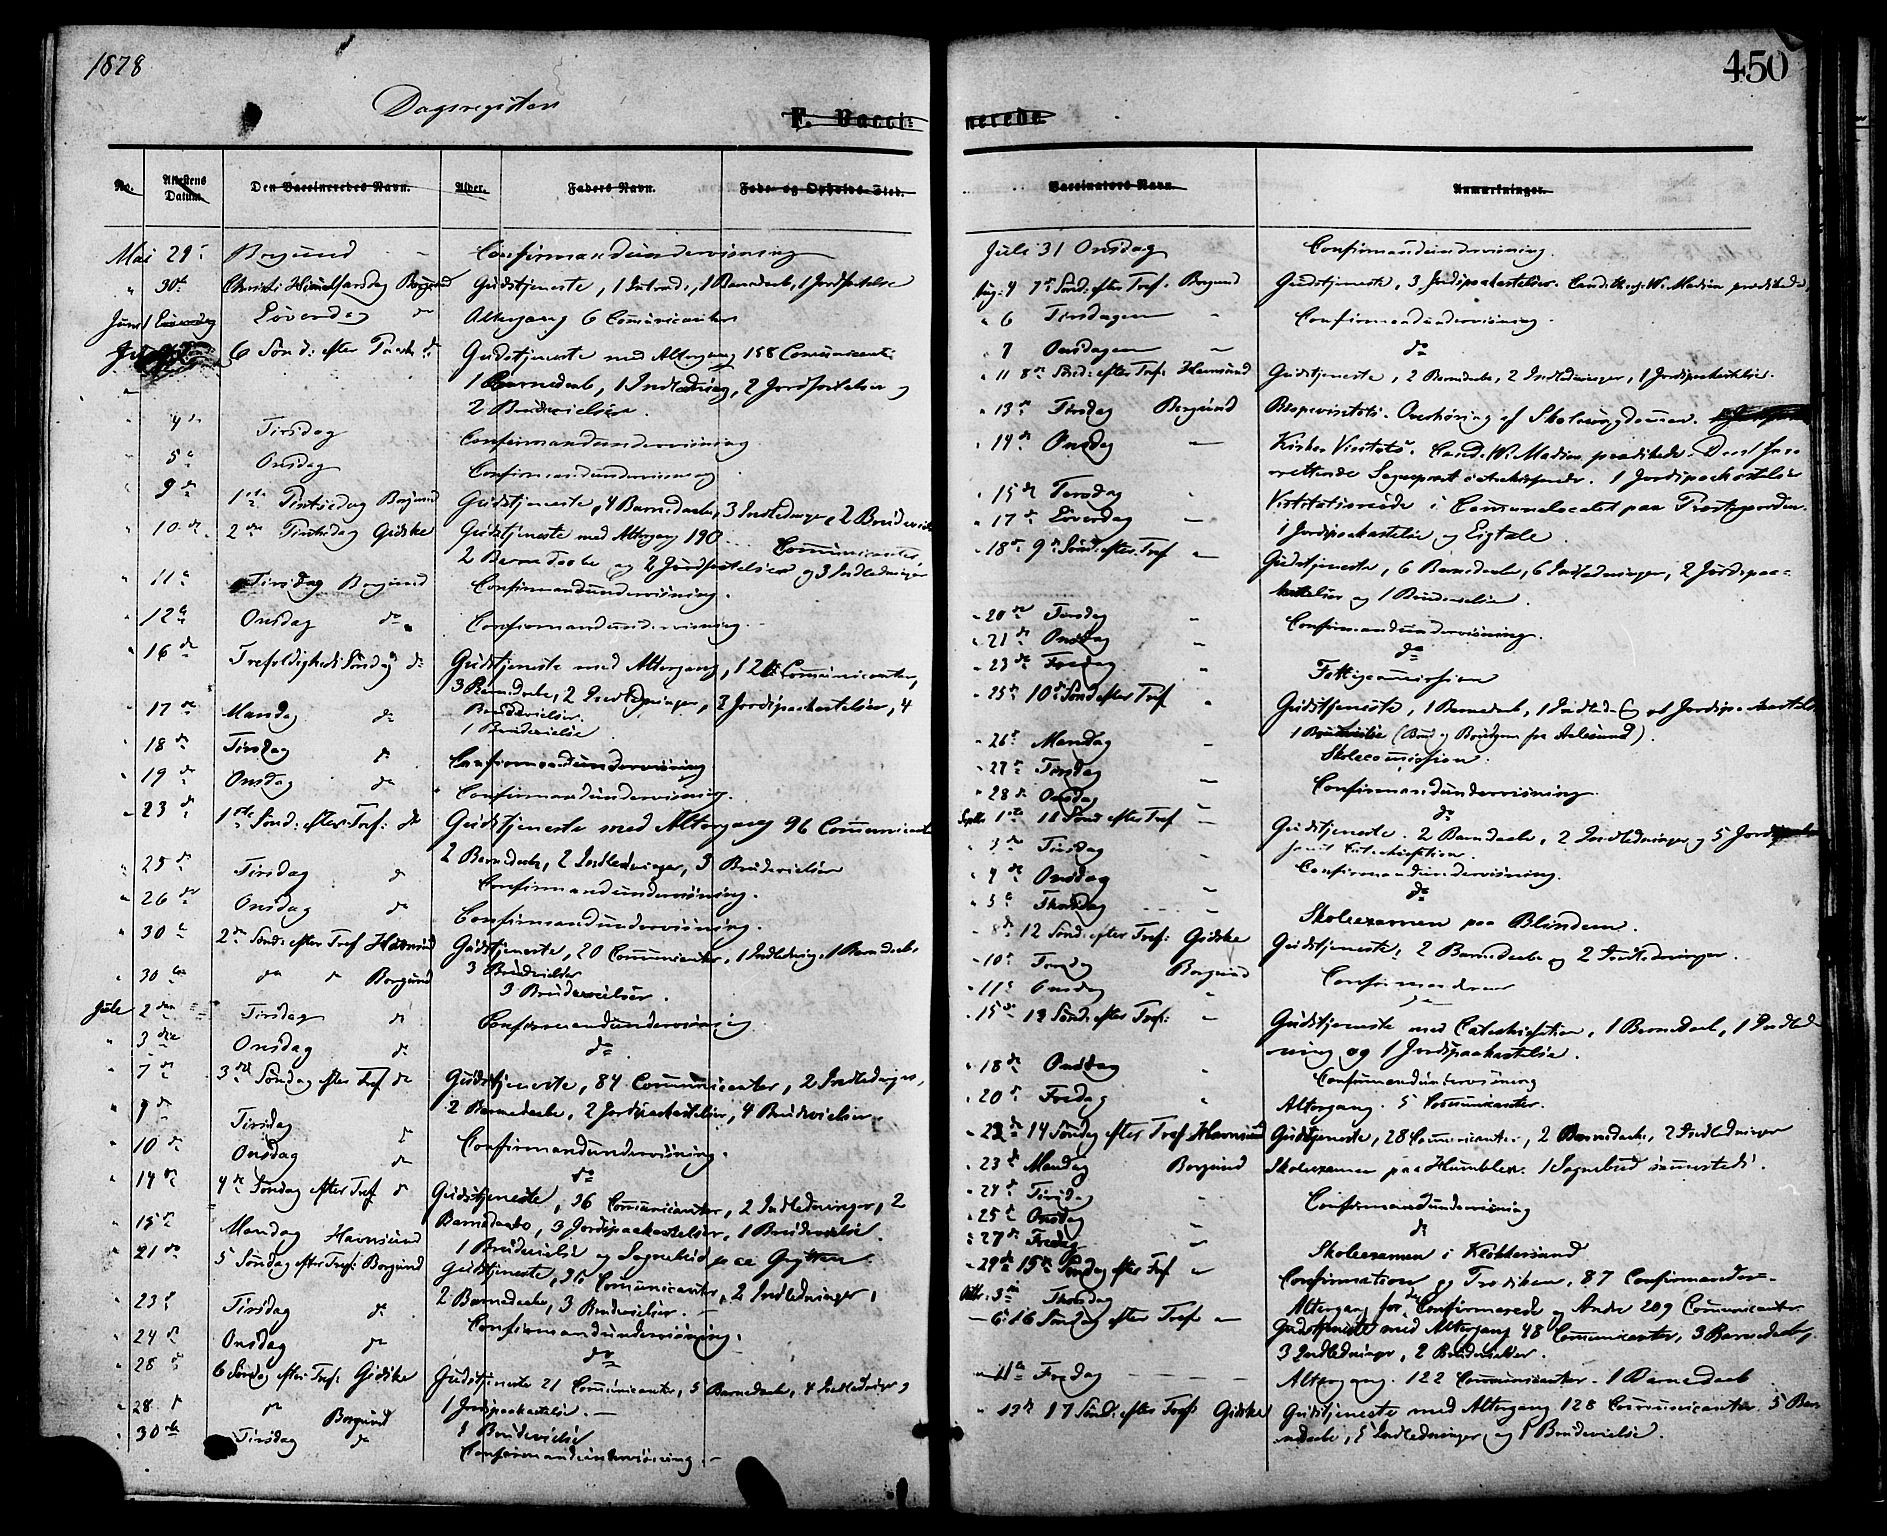 1878
450
Dagsregister
F. Vacci-
nerede
No. Attestens Datum. Den Vaccineredes Navn. Alder. Faders Navn. Føde- og Opholds-Sted.
Mai 29 Borgund Confirmandundervisning
" 30te Christi Himmelfartsdag Borgund Gudstjeneste, 1 Introd:, 1 Barnedaab, 1 Jordfæstelse
Juni 1 Løverdag do Altergang 6 Communicanter
6 Sønd: efter Paaske do Gudstjeneste med Altergang 158 Communicanter
1 Barnedaab, 1 Indledning, 2 Jordfæstelser og
2 Brudevielser.
" 4de Tirsdag Confirmandundervisning
" 5te Onsdag Confirmandundervisning
" 9de 1ste Pintsedag Borgund Gudstjeneste, 4 Barnedaab, 3 Indledninger, 2 Brudevielser
" 10de 2den Pintsedag Gidske Gudstjeneste med Altergang 190 Communicanter
2 Barnedaabe og 2 Jordfæstelser og 3 Indledninger
" 11te Tirsdag Borgund Confirmandundervisning.
" 12te Onsdag do Confirmandundervisning.
" 16de Trefoldigheds Søndag do Gudstjeneste med Altergang, 126 Communicanter,
3 Barnedaabe, 2 Indledninger, 2 Jordspaakastelser, 4
Brudevielser.
" 17de Mandag do 1 Brudevielse
" 18de Tirsdag do Confirmandundervisning
" 19de Onsdag do Confirmandundervisning.
" 23de 1ste Sønd: efter Tref: do Gudstjeneste med Altergang 96 Communicanter
2 Barnedaabe, 2 Indledninger, 3 Brudevielser
" 25de Tirsdag do Confirmandundervisning.
" 26de Onsdag do Confirmandundervisning.
" 30te 2den Sønd: efter Tref Havnsund Gudstjeneste, 20 Communicanter, 1 Indledning, 1 Barnedaab,
3 Brudevielser
" 30te do do Borgund 3 Brudevielser.
Juli 2den Tirsdag do Confirmandundervisning
" 3die Onsdag do do
" 7de 3die Søndag efter Tref do Gudstjeneste, 84 Communicanter, 2 Indledninger,
2 Barnedaabe, 2 Jordspaakastelser, 4 Brudevielser.
" 9de Tirsdag do
" 10de Onsdag do Confirmandundervisning.
do
" 14de 4de Søndag efter Tref do Gudstjeneste, 36 Communicanter, 2 Indledninger, 2
Barnedaabe, 3 Jordspaakastelser, 1 Brudevielse.
" 15de Mandag Havnsund 1 Brudevielse og Sognebud
" 21de 5 Søndag efter Tref: Borgund Gudstjeneste, 36 Communicanter, 2 Indledninger,
2 Barnedaabe, 3 Brudevielser.
" 23de Tirsdag do Confirmandundervisning.
" 24de Onsdag do do
" 28de 6 Søndag efter Tref: Gidske Gudstjeneste 21 Communicanter, 5 Barnedaabe, 4 Indledninger og
1 Jordspaakastelse.
" 28de do Borgund Brudevielse
" 30te Tirsdag do Confirmandundervisning.
Vaccinators Navn. Anmærkninger.
Juli 31 Onsdag Confirmandundervisning.
Aug. 4 7de Sønd: efter Tref. Borgund Gudstjeneste, 3 Jordspaakastelser. Cand. W. Madsen prædikede
" 6 Tirsdagen Confirmandundervisning
" 7 Onsdagen do
" 11 8de Sønd: efter Tref: Havnsund Gudstjeneste, 2 Barnedaabe, 2 Indledninger, 1 Jordspaakastelse.
" 13de Tirsdag Borgund Bispevisitats. Overhøring af Skoleungdommen.
" 14de Onsdag Kirke Visitats. Cand. W. Madsen prædikede.
1 Jordspaakastelse
" 15de Torsdag Visitatsmøde i Communelocalet paa Prostegaarden.
" 17de Løverdag 1 Jordspaakastelse og Ligtale.
" 18de 9de Sønd: efter Tref Gudstjeneste, 6 Barnedaabe, 6 Indledninger, 2 Jordspaa-
kastelser og 1 Brudevielse.
" 20de Tirsdag Confirmandundervisning.
" 21de Onsdag do
" 23de Fredag Fattigcommission
" 25de 10de Sønd efter Tref Gudstjeneste, 1 Barnedaab, 1 Indledn:
1 Brudevielse (Brud og Brudgom fra Aalesund).
" 26de Mandag Skolecommission.
" 27de Tirsdag Confirmandundervisning.
" 28de Onsdag do
Septbr 1ste 11 Sønd efter Tref Gudstjeneste. 2 Barnedaabe, 2 Indledninger og 5 Jordspaakast
samt Catechisation.
" 3die Tirsdag Confirmandundervisning.
" 4de Onsdag do
" 5te Thorsdag Skoleexamen paa Blindem.
" 8de 12 Sønd: efter Tref: Gidske Gudstjeneste, 2 Barnedaabe og 2 Indledninger.
" 10de Borgund
" 11te Onsdag
" 15de 13 Sønd: efter Tref: Gudstjeneste med Catechisation, 1 Barnedaab, 1 Indled
ning og 1 Jordspaakastelse.
" 18de Onsdag Confirmandundervisning
" 20de Fredag Altergang. 5 Communicanter.
" 22de 14 Søndag efter Tref Havnsund Gudstjeneste, 28 Communicanter, 2 Barnedaabe, 2 Indledninger
" 23de Mandag Borgund Skoleexamen paa Humblen. 1 Sognebud sammesteds.
" 24de Tirsdag Confirmandundervisning
" 25de Onsdag do
" 27de Fredag Skoleexamen i
" 29de 15de Søndag efter Tref Confirmation og Prædiken, 87 Confirmander
Octbr. 3die Thorsdag Altergang for de Confirmerede og Andre 209 Communicanter
" 6te 16 Søndag efter Tref: Gudstjeneste med Altergang 48 Communicanter, 3 Barnedaabe,
3 Indledninger, 2 Brudevielser.
" 11te Fredag Altergang. 122 Communicanter. 1 Barnedaab
" 17 Sønd: efter Tref: Gidske Gudstjeneste med Altergang 128 Communicanter. 5 Bar
nedaabe, 5 Indledninger og 1 Brudevielse.